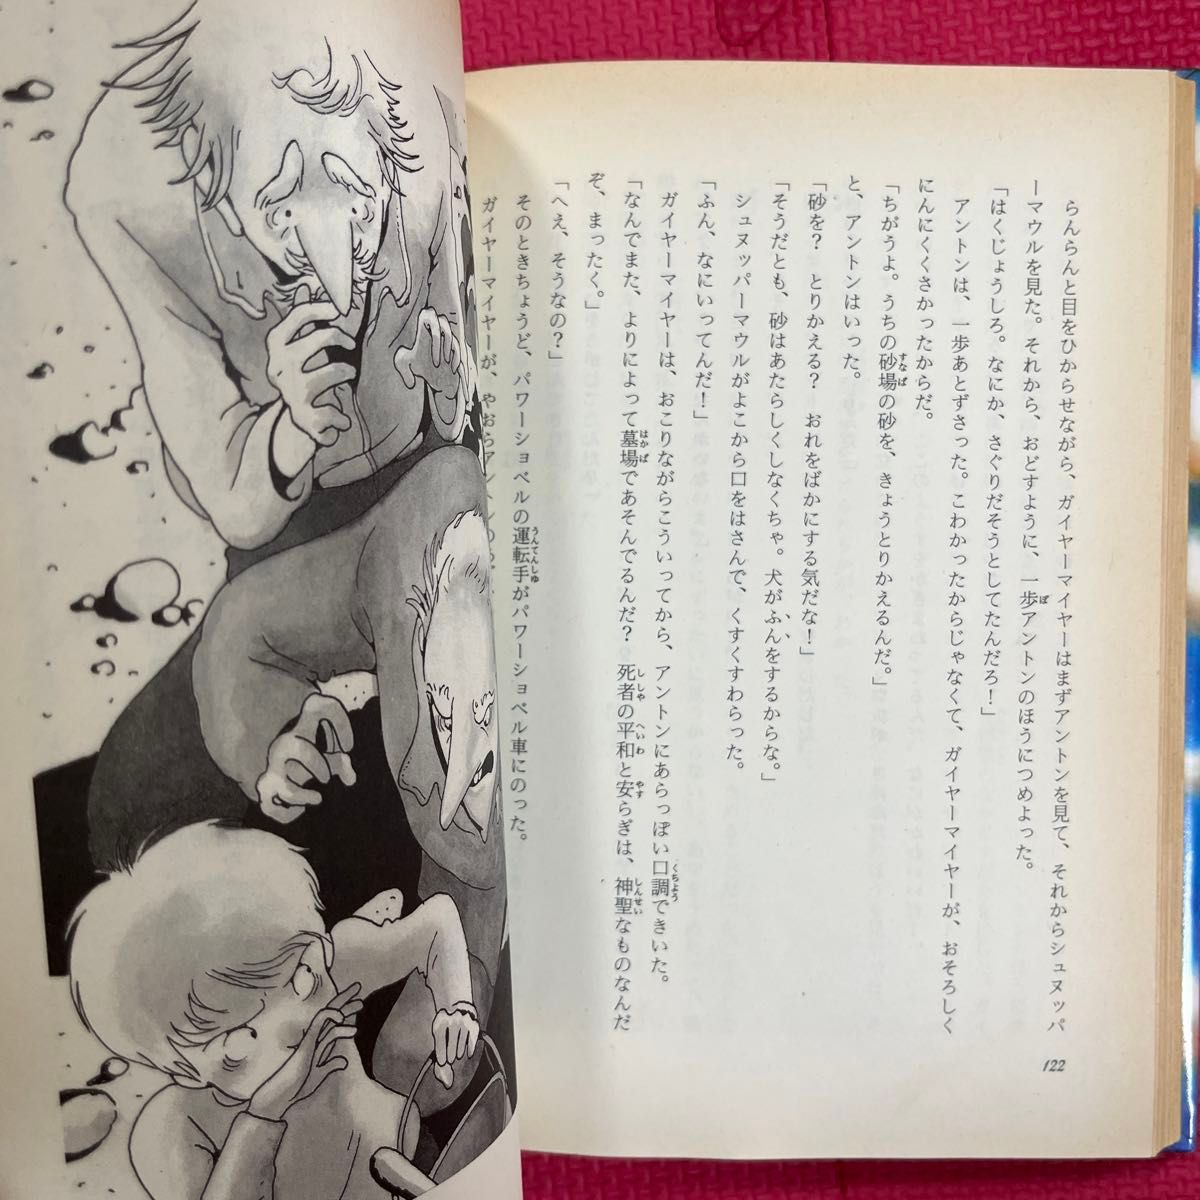 らんらんと目をひからせながら、ガイヤーマイヤーはまずアントンを見て、それからシュヌッパ
ーマウルを見た。それから、おどすように、一歩アントンのほうにつめよった。
「はくじょうしろ。なにか、さぐりだそうとしてたんだろ！」
アントンは、一歩あとずさった。こわかったからじゃなくて、ガイヤーマイヤーが、おそろしく
にんにくくさかったからだ。
「ちがうよ。うちの砂場の砂を、きょうとりかえるんだ。」
と、アントンはいった。
「砂を？　とりかえる？　おれをばかにする気だな！」
「そうだとも、砂はあたらしくしなくちゃ。犬がふんをするからな。」
シュヌッパーマウルがよこから口をはさんで、くすくすわらった。
「ふん、なにいってんだ！」
ガイヤーマイヤーは、おこりながらこういってから、アントンにあらっぽい口調できいた。
「なんでまた、よりによって墓場であそんでるんだ？　死者の平和と安らぎは、神聖なものなんだ
ぞ、まったく。」
「へえ、そうなの？」
そのときちょうど、パワーショベルの運転手がパワーショベル車にのった。
ガイヤーマイヤーが、やおらア
122